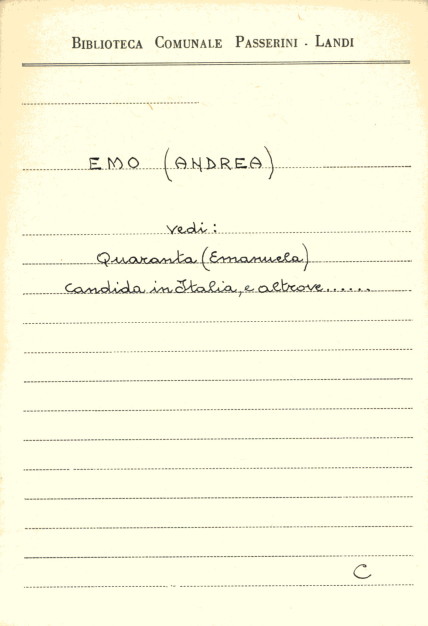 BIBLIOTECA COMUNALE PASSERINI - LANDI
EMO (ANDREA)
vedi:
Quaranta (Emanuela)
Candida in Italia, e altrove......
C